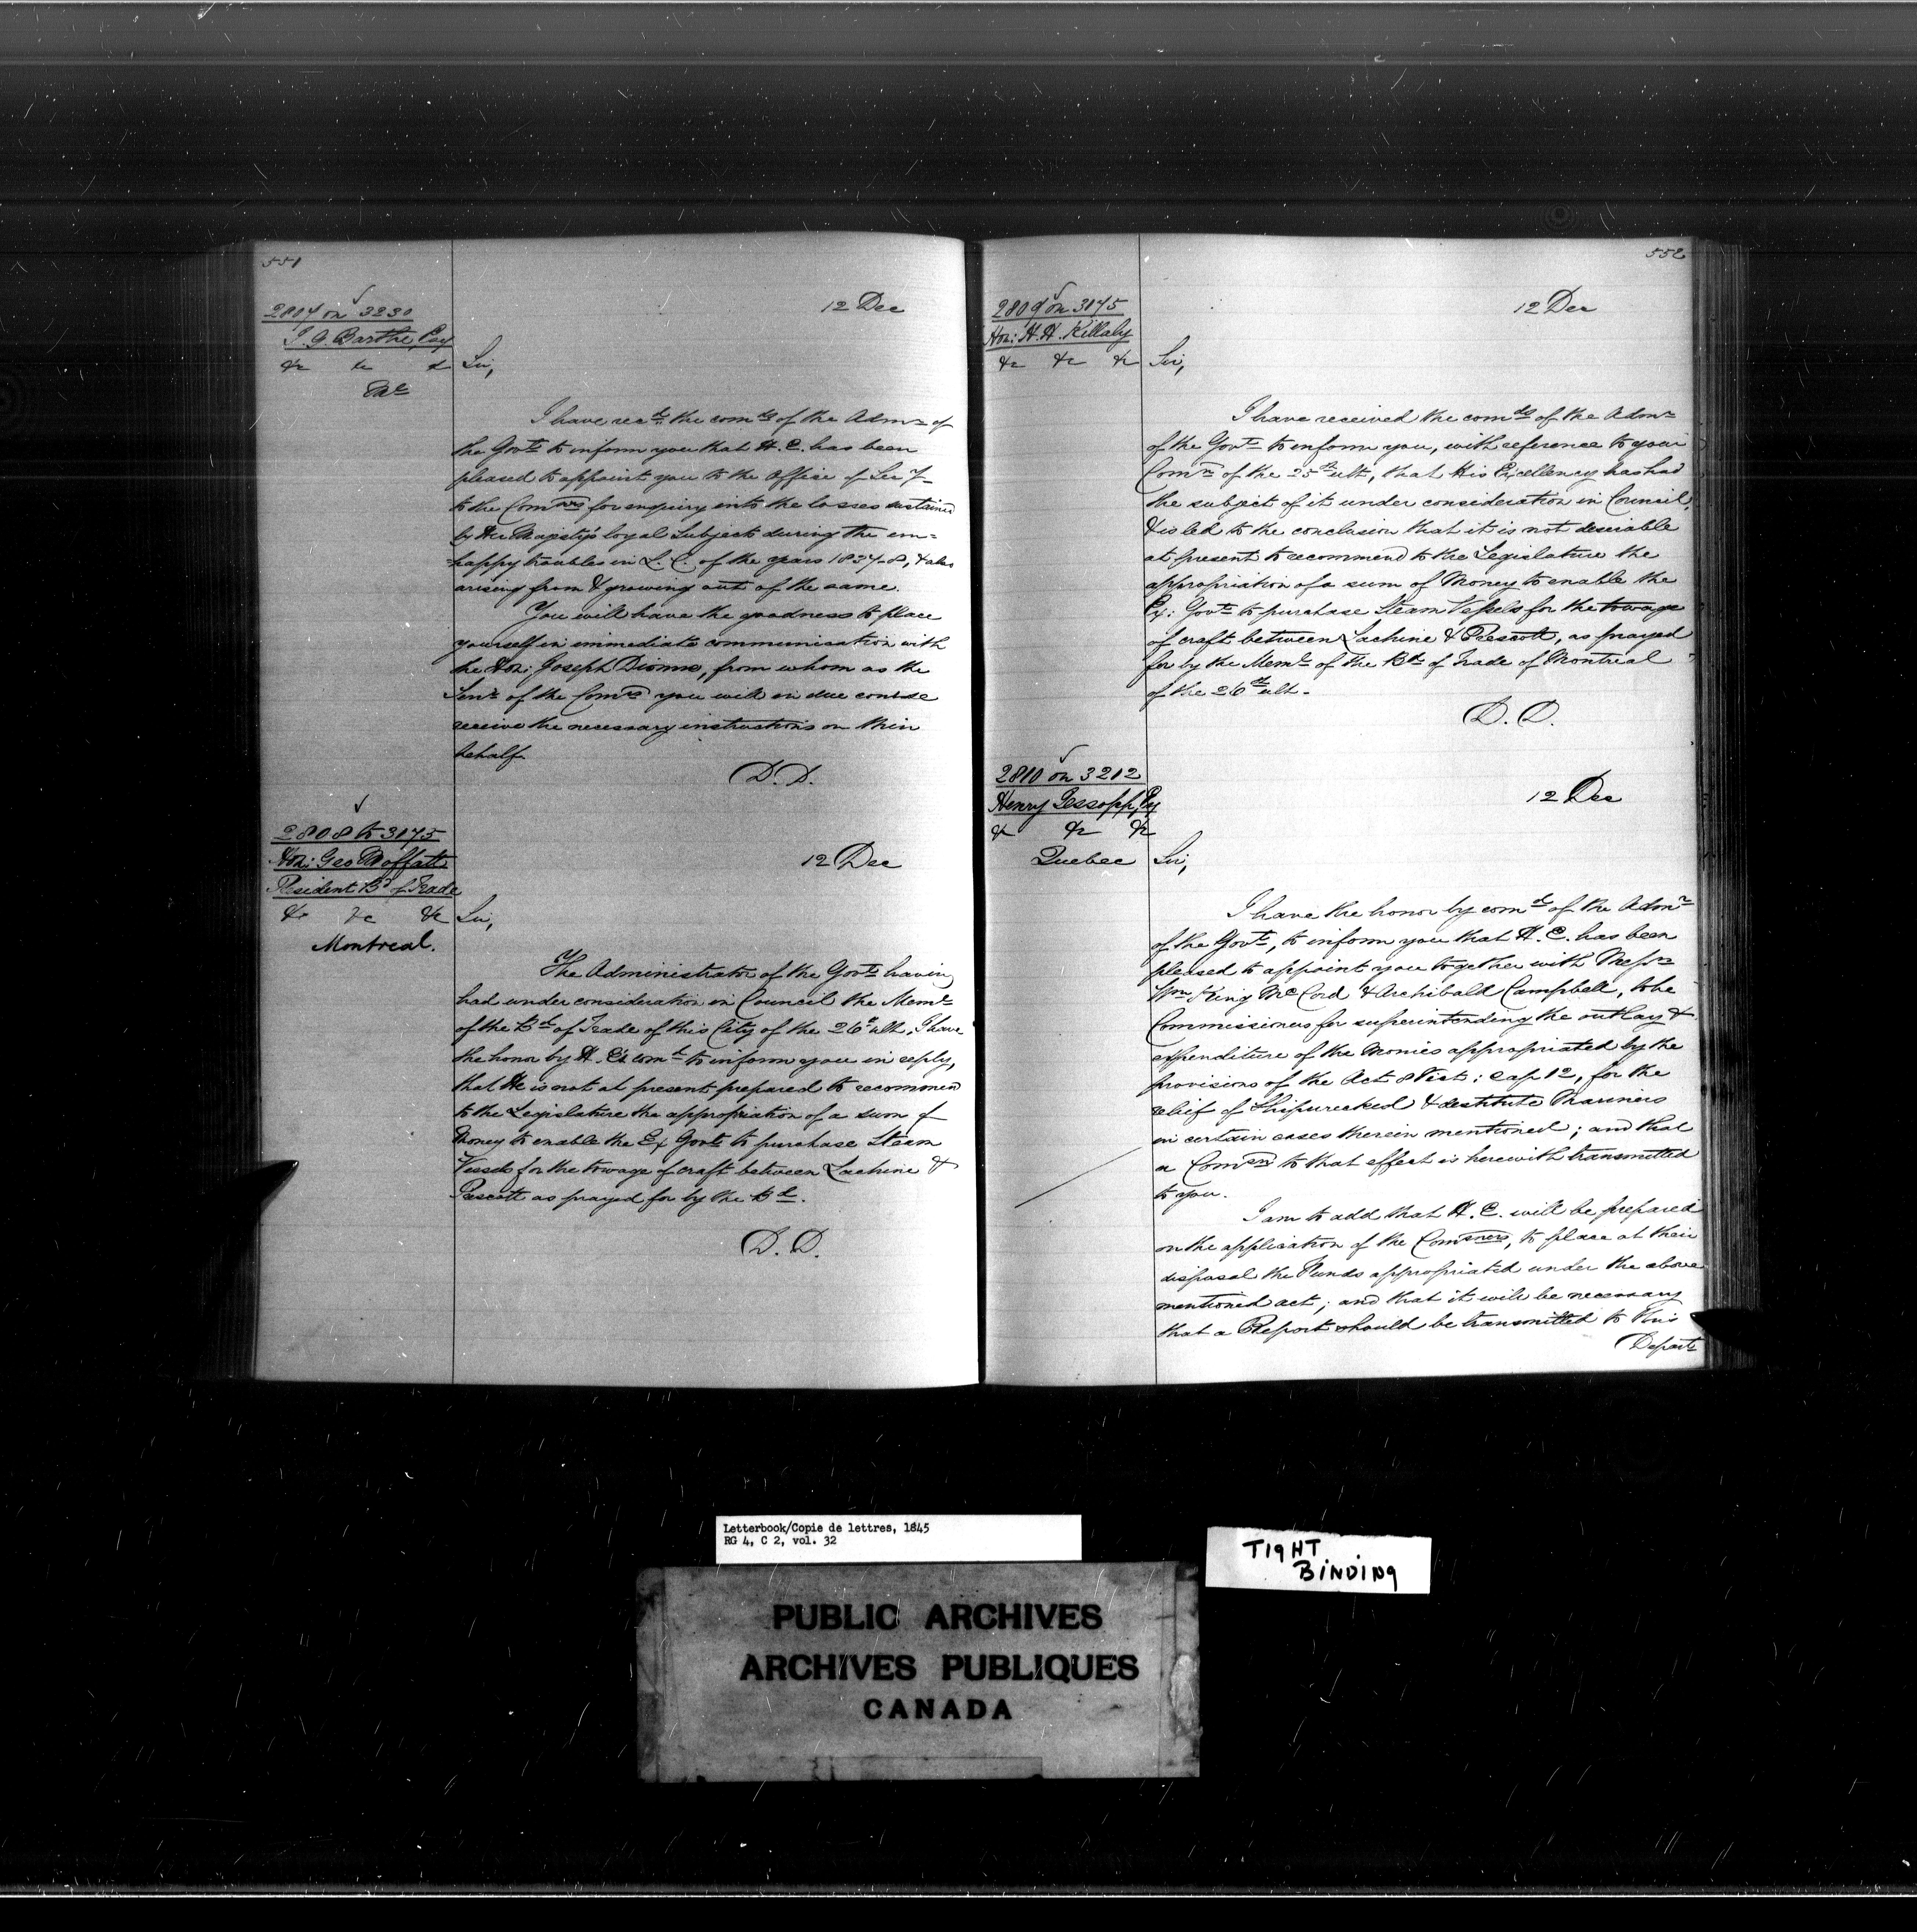 551
2807 on 3230
J. G. Barthe, Esq
&c &c &c
12 Dec
Sir,
I have recd. the comds of the Admr of
the Govt. to inform you that H. E. has been
pleased to appoint you to the Office of Secy
to the Comrs for enquiry into the losses sustained
by Her Majesty's loyal Subjects during the un=
=happy troubles in L. C. of the years 1837-8, & also
arising from & growing out of the same.
You will have the goodness to place
yourself in immediate communication with
the Hon: Joseph Dionne, from whom as the
Senr. of the Comrs you will in due course
receive the necessary instructions on this
behalf.
D. D.
2808 to 3175
Hon: Geo Moffatt
President Bd of Trade
&c &c &c
Montreal.
12 Dec
Sir,
The Administrator of the Govt. having
had under consideration in Council the Meml.
of the Bd of Trade of this City of the 26th ult, I have
the honor by H. E's comd. to inform you in reply,
that He is not at present prepared to recommend
to the Legislature the appropriation of a sum of
Money to enable the Ex Govt. to purchase Steam
Vessels for the towage of craft between Lachine &
Prescott as prayed for by the Bd.
D. D.
552
2809 on 3175
Hon: H. H. Killaly
&c &c &c
12 Dec
Sir,
I have received the comds of the Admr
of the Govt. to inform you, with reference to your
Comn of the 25th ult, that His Excellency has had
the subject of it under consideration in Council,
& is led to the conclusion that it is not desirable
at present to recommend to the Legislature the
appropriation of a sum of Money to enable the
Ex: Govt. to purchase Steam Vessels for the towage
of craft between Lachine & Prescott, as prayed
for by the Meml. of the Bd of Trade of Montreal
of the 26th ult.
D. D.
2810 on 3212
Henry Jessopp, Esq
&c &c &c
Quebec
12 Dec
Sir,
I have the honor by comd. of the Admr
of the Govt., to inform you that H. E. has been
pleased to appoint you together with Messrs
Wm King McCord & Archibald Campbell, to be
Commissioners for superintending the outlay &
expenditure of the Monies appropriated by the
provisions of the Act 8 Vict: Cap 12, for the
relief of Shipwrecked & destitute Mariners
in certain cases therein mentioned; and that
a Comsn to that effect is herewith transmitted
to you.
I am to add that H. E. will be prepared
on the application of the Comsners, to place at their
disposal the Funds appropriated under the above
mentioned act; and that it will be necessary
that a Report should be transmitted to this
Depart.
Letterbook/Copie de lettres, 1845
RG 4, C 2, vol. 32
TIGHT
BINDING
PUBLIC ARCHIVES
ARCHIVES PUBLIQUES
CANADA